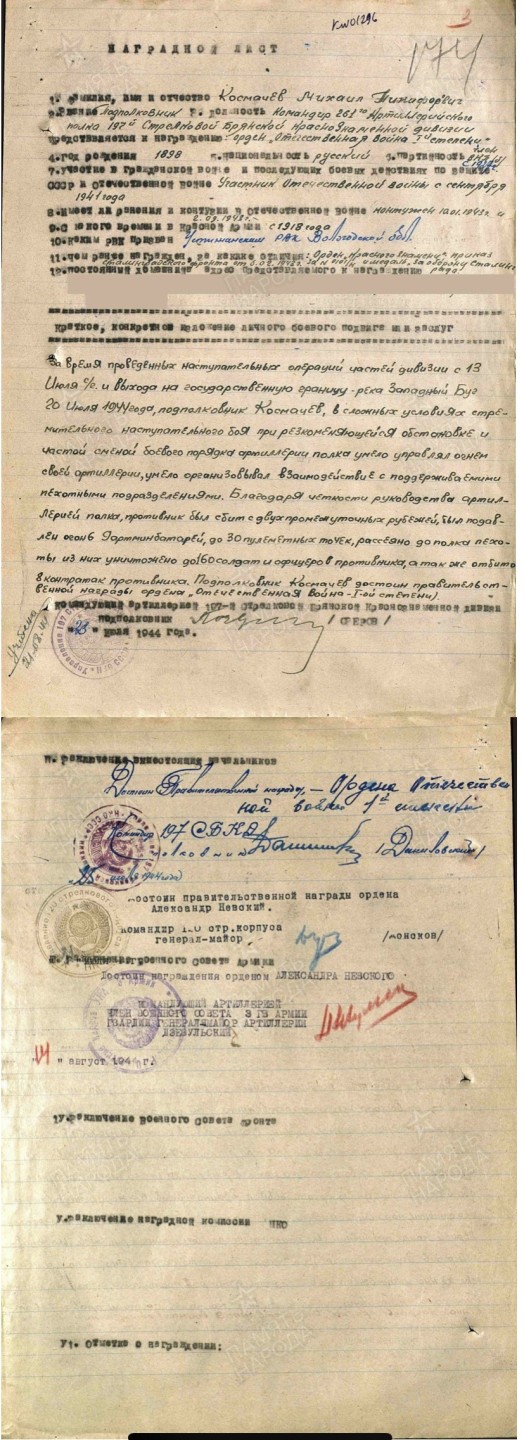 КW01296
3
174
НАГРАДНОЙ ЛИСТ
1. Фамилия, имя и отчество Космачев Михаил Никифорвич
2. Звание Подполковник 3. должность Командир 261го Артиллерийского
полка 197й Стрелковой Брянской Краснознаменной дивизии
представляется к награждению орден „Отечественная Война Iй степени"
4. год рождения 1898 5. национальность русский 6. партийность член ВКП(б)
7. Участие в гражданской войне и последующих боевых действиях по защите
СССР и Отечественной войне Участник Отечественной войны с сентября
1941 года
8. Имеет ли ранения и контузии в Отечественной войне контужен
9. С какого времени в Красной Армии с 1918 года
10. Каким РВК призван РВК Вологодской обл.
11. Чем ранее награжден, за какие отличия: Орден „Красного Знамени" приказ
Сталинградского фронта и медаль „За оборону Сталин
града"
12. Постоянный домашний адрес представляемого к награждению
Краткое, конкретное изложение личного боевого подвига или заслуг
За время проведенных наступательных операций частей дивизии с 13
Июля с/г. и выхода на государственную границу-река Западный Буг
20 Июля 1944 года, подполковник Космачев, в сложных условиях стре-
мительного наступательного боя при резкоменяющейся обстановке и
частой сменой боевого порядка артиллерии полка умело управлял огнем
своей артиллерии, умело организовывал взаимодействие с поддерживаемыми
пехотными подразделениями. Благодаря четкости руководства артил-
лерией полка, противник был сбит с двух промежуточных рубежей, был подав-
лен огонь 9 артминбатарей, до 30 пулеметных точек, рассеяно до полка пехо-
ты из них уничтожено до 160 солдат и офицеров противника, а так же отбито
8 контратак противника. Подполковник Космачев достоин правительст-
венной награды ордена „Отечественная Война-I-ой степени)
Командующий артиллерией 197-й Стрелковой Брянской Краснознаменной дивизии
подполковник / СЕРОВ /
"28" июля 1944 года.
П. Заключение вышестоящих начальников
Достоин Правительственной награды, – Ордена Отечествен
ной войны 1й степени
Командир 197 СБКД
Полковник /Даниловский/
1944 года
Достоин правительственной награды ордена
Александр Невский.
Командир 120 стр.корпуса
генерал-майор /ДОНСКОВ/
Ш. Заключение Военного Совета Армии
Достоин награждения орденом АЛЕКСАНДРА НЕВСКОГО
КОМАНДУЮЩИЙ АРТИЛЛЕРИЕЙ
ЧЛЕН ВОЕННОГО СОВЕТА 3 ГВ АРМИИ
ГВАРДИИ ГЕНЕРАЛ-МАЙОР АРТИЛЛЕРИИ
ДЗЕВУЛЬСКИЙ
"14" август 1944 г.
1У. Заключение Военного Совета Фронта
У. Заключение наградной комиссии НКО
У1. Отметка о награждении:
ПАМЯТЬ
НАРОДА